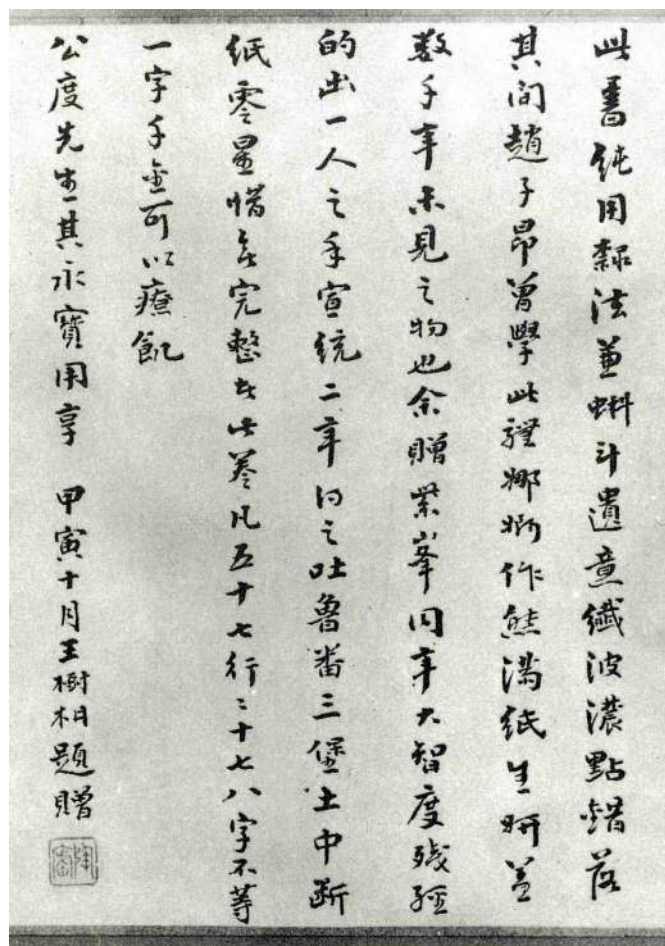 此書純用隸法兼蝌斗遺意纖波濃點錯落
其間趙子昂曾學此種娜婀作態滿紙生妍蓋
數千年未見之物也余贈紫峯同年大智度殘經
的出一人之手宣統二年得之吐魯番三堡土中斷
紙零星惜無完整者此卷凡五十七行行十七八字不等
一字千金可以療飢
公度先生其永寶用享 甲寅十月王樹枏題贈